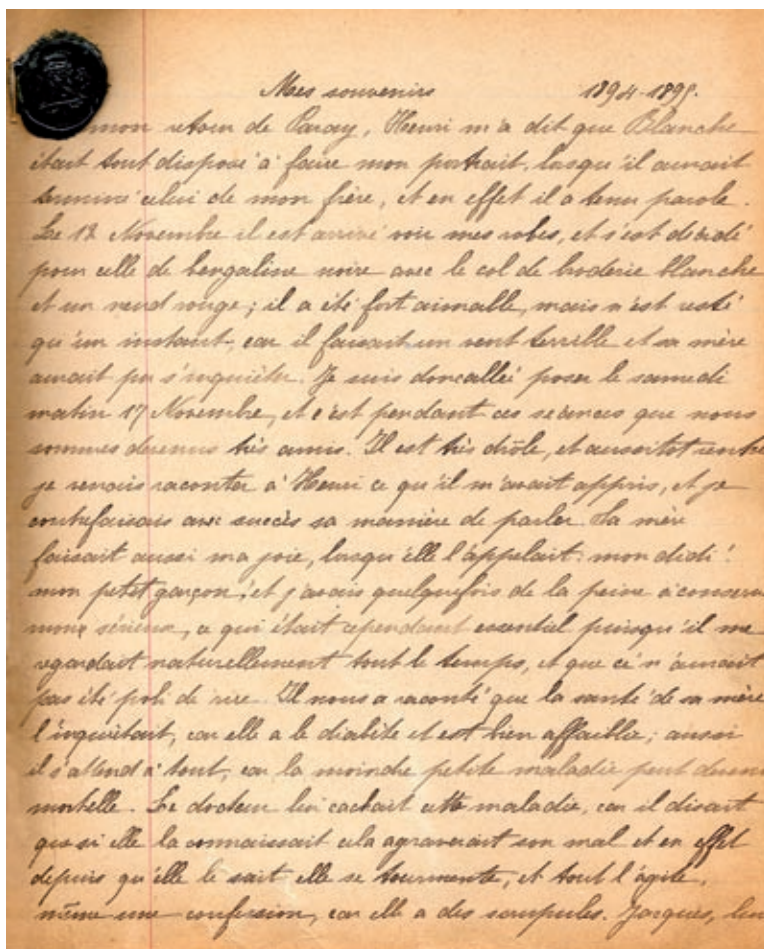 Mes souvenirs 1894-1895.
mon retour de Paray, Henri m'a dit que Blanche
était tout disposé à faire mon portrait, lorsqu'il aurait
terminé celui de mon frère, et en effet il a tenu parole.
Le 12 Novembre il est arrivé voir mes robes, et s'est décidé
pour celle de bengaline noire avec le col de broderie blanche
et un nœud rouge; il a été fort aimable, mais n'est resté
qu'un instant, car il faisait un vent terrible et sa mère
aurait pu s'inquiéter. Je suis donc allée poser le samedi
matin 17 Novembre, et c'est pendant ces séances que nous
sommes devenus très amis. Il est très drôle, et aussitôt
je venais raconter à Henri ce qu'il m'avait appris, et je
contrefaisais avec succès sa manière de parler. Sa mère
faisait aussi ma joie, lorsqu'elle l'appelait: mon didi!
mon petit garçon! et j'avais quelquefois de la peine à
mon sérieux, ce qui était cependant essentiel puisqu'il me
regardait naturellement tout le temps, et que ce n'aurait
pas été poli de rire. Il nous a raconté que la santé de sa mère
l'inquiétait, car elle a le diabète et est bien affaiblie; aussi
il s'attend à tout, car la moindre petite maladie peut
mortelle. Le docteur lui cachait cette maladie, car il disait
que si elle la connaissait cela agraverait son mal et en effet
depuis qu'elle le sait elle se tourmente, et tout l'agite,
même une confession, car elle a des scrupules. Jacques,